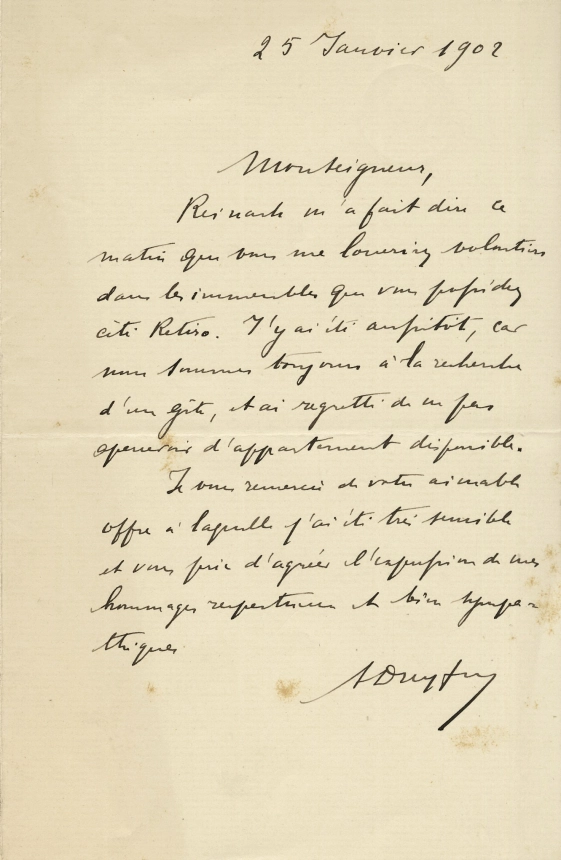 25 Janvier 1902
Monseigneur,
Reinach m'a fait dire ce
matin que vous me loueriez volontiers
dans les immeubles que vous possédez
cité Retiro. J'y ai été aussitôt, car
nous sommes toujours à la recherche
d'un gîte, et ai regretté de ne pas
apercevoir d'appartement disponible.
Je vous remercie de votre aimable
offre à laquelle j'ai été très sensible
et vous prie d'agréer l'expression de mes
hommages respectueux et bien sympa-
thiques
ADreyfus